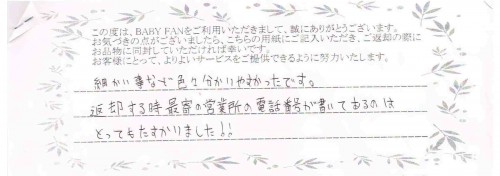 この度は、BABY FANをご利用いただきまして、誠にありがとうございます。
お気づきの点がございましたら、こちらの用紙にご記入いただき、ご返却の際に
お品物に同封していただければ幸いです。
お客様にとって、よりよいサービスをご提供できるように努力いたします。
細かい事など色々分かりやすかったです。
返却する時最寄の営業所の電話番号が書いてあるのは
とってもたすかりました!!